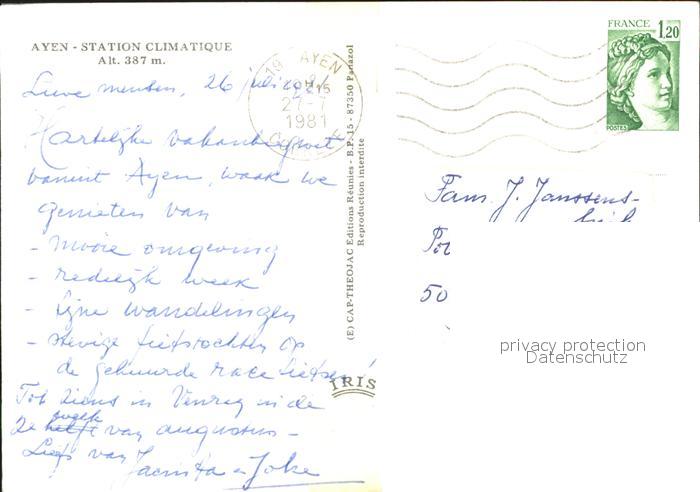 AYEN - STATION CLIMATIQUE
Alt. 387 m.
Lieve mensen, 26 juli 1981
Hartelijke vakantiegroet
vanuit Ayen, waar we
genieten van
- Mooie omgeving
- redelijk weer
- fijne wandelingen
- stevige fietstochten op
de gehuurde race fietsen!
Tot ziens in Venray in de
2e week helft van augustus -
Liefs van Jacinta en Joke
19 AYEN
15
27-7
1981
(E) CAP-THEOJAC Editions Réunies - B.P. 15 - 87350 Panazol
Reproduction interdite
IRIS
FRANCE
1,20
POSTES
Fam. J. Janssens-
50
privacy protection
Datenschutz